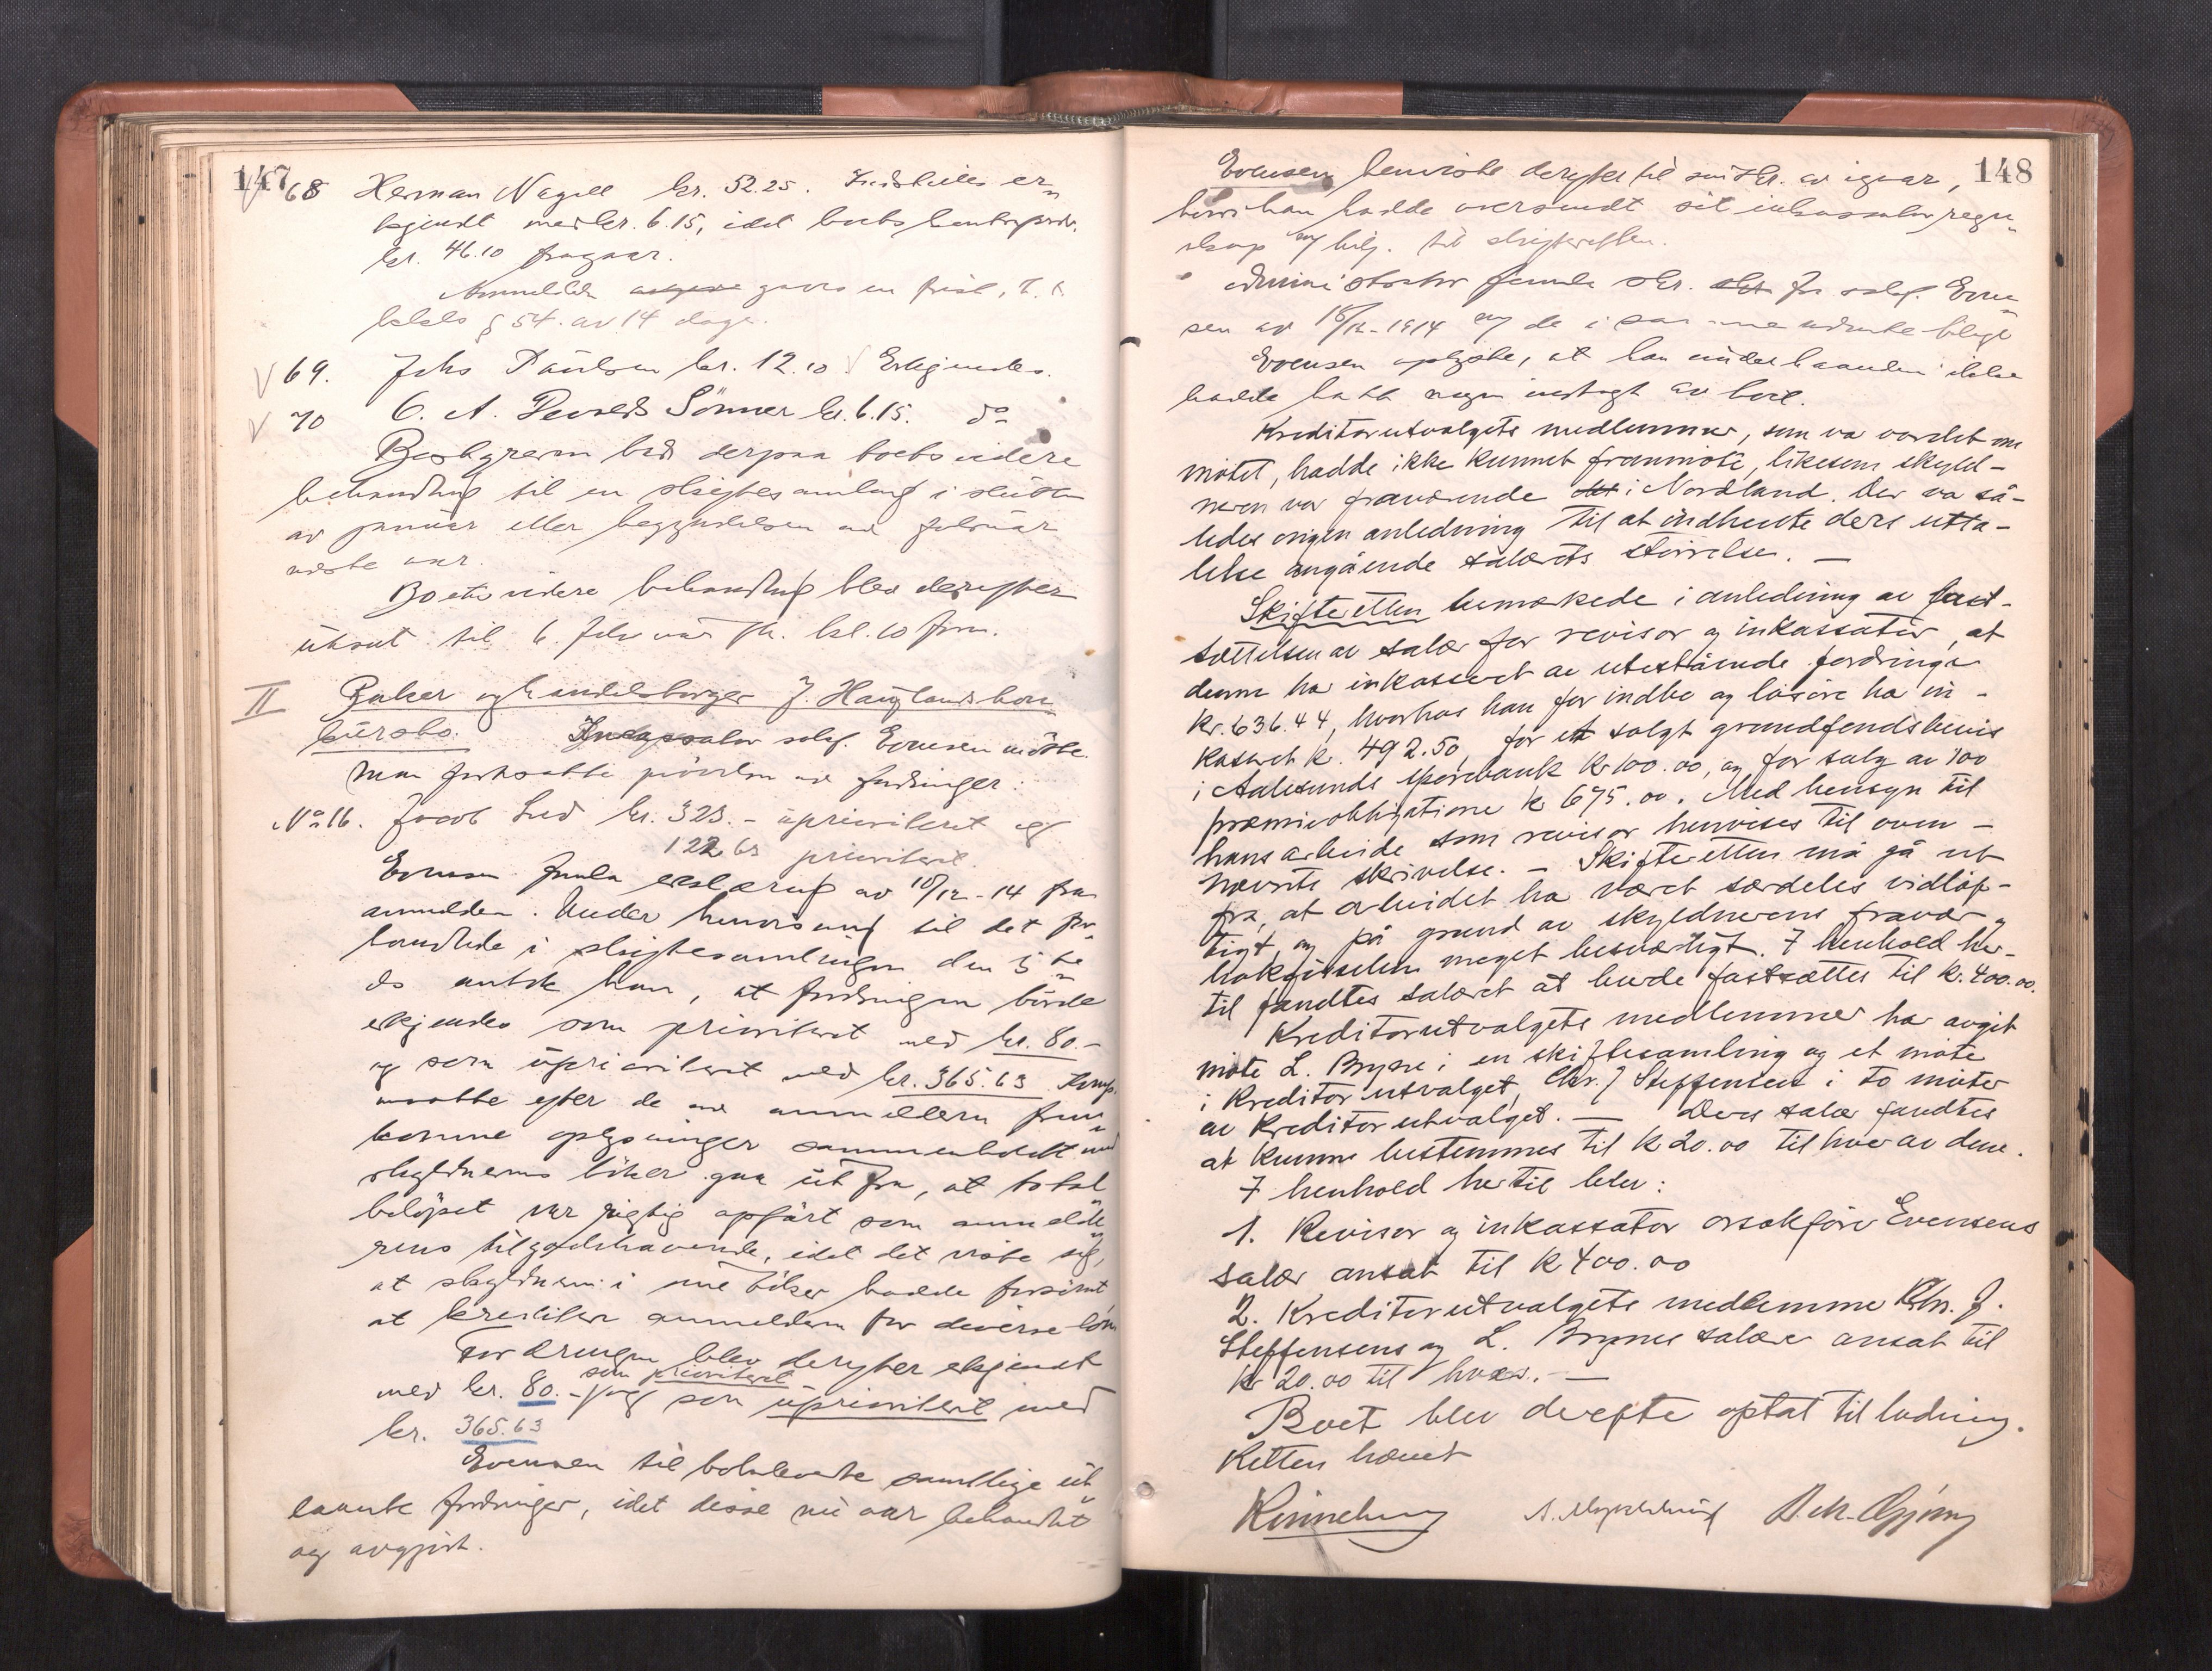 147
68 Herman Nagell kr. 52.25. Indstilles er-
kjendt med kr. 6.15, idet boets
kr. 46.10 fragaar.
Anmelderen gives en frist,
§ 54. av 14 dage.
69. Johs Paulsen kr. 12.10 Erkjendes.
70 C. A. Sönner kr. 6.15. do
Bestyreren bad derpaa boets videre
behandling til en skiftesamling i slutten
av januar eller begyndelsen av februar
næste aar.
Boets videre behandling blev derefter
utsat til 6. februar kl. 10 fm.
II Baker og handelsborger J. Hauglands kon-
kursbo. sakf. Evensen mötte.
Man fortsatte prövelsen av fordringer:
No 16. Jacob kr. 323.- uprioritert og
122.63 prioritert.
Evensen frem erklæring av 10/12-14 fra
anmelderen. Under henvisning til det for-
handlede i skiftesamlingen den 5te
ds antok han, at fordringen burde
erkjendes som prioritert med kr. 80.-
og som uprioritert med kr. 365.63
maatte efter de av anmelderen frem-
komne oplysninger sammenholdt med
skyldnerens böker gaa ut fra, at total
belöpet var rigtig opfört som anmelde-
rens tilgodehavende, idet det viste sig,
at skyldneren i sine böker hadde forsömt
at kreditere anmelderen for diverse lön
Fordringen blev derefter erkjendt
som prioritert
med kr. 80.- og som uprioritert med
kr. 365.63
Evensen tilbakeleverte samtlige ut
laante fordringer, idet disse nu var behandlet
og avgjort.
148
Evensen henviste derefter til sin skr. av igaar,
hvori han hadde oversendt sit inkassatorregn-
skap m/ bilj. til skifteretten.
Administrator fremla skr. fra sakf. Even-
sen av 15/12-1914 m/ de i samme bilage
Evensen oplyste, at han underhaanden ikke
hadde hatt nogen indtægt av boet.
Kreditorutvalgets medlemmer, som va varslet om
møtet, hadde ikke kunnet fremmøte, likesom skyld-
neren var fraværende i Nordland. Der va så-
ledes ingen anledning til at indhente deres utta-
lelse angående salærets størrelse. —
Skifteretten bemærkede i anledning av fast-
sættelsen av salær for revisor og inkassator, at
denne har inkasseret av utestående fordringer
kr. 636.44, hvorhos han for indbo og løsøre ha in-
kasseret kr. 492.50, for et solgt grundfondsbevis
i Aalesunds Sparebank kr 100.00, og for salg av 100
præmieobligationer kr 675.00. Med hensyn til
hans arbeide som revisor henvises til oven-
nævnte skrivelse. — Skifteretten må gå ut
fra, at arbeidet ha været særdeles vidløf-
tigt, og på grund av skyldnerens fravær og
bokførselen meget besværligt. I henhold her-
til fandtes salæret at burde fastsættes til kr. 400.00.
Kreditorutvalgets medlemmer ha avgit
møte L. Brynie i en skiftesamling og et møte
i kreditorutvalget, Chr. J Steffensen i to møter
av kreditorutvalget. — Deres salær fandtes
at kunne bestemmes til kr 20.00 til hver av dem.
I henhold hertil blev:
1. Revisor og inkassator orsakfører Evensens
salær ansat til kr 400.00
2. Kreditorutvalgets medlemmer Chr. J.
Steffensens og L. Brynies salær ansat til
kr 20.00 til hver. —
Boet blev derefter optat til lodning.
Retten hævet